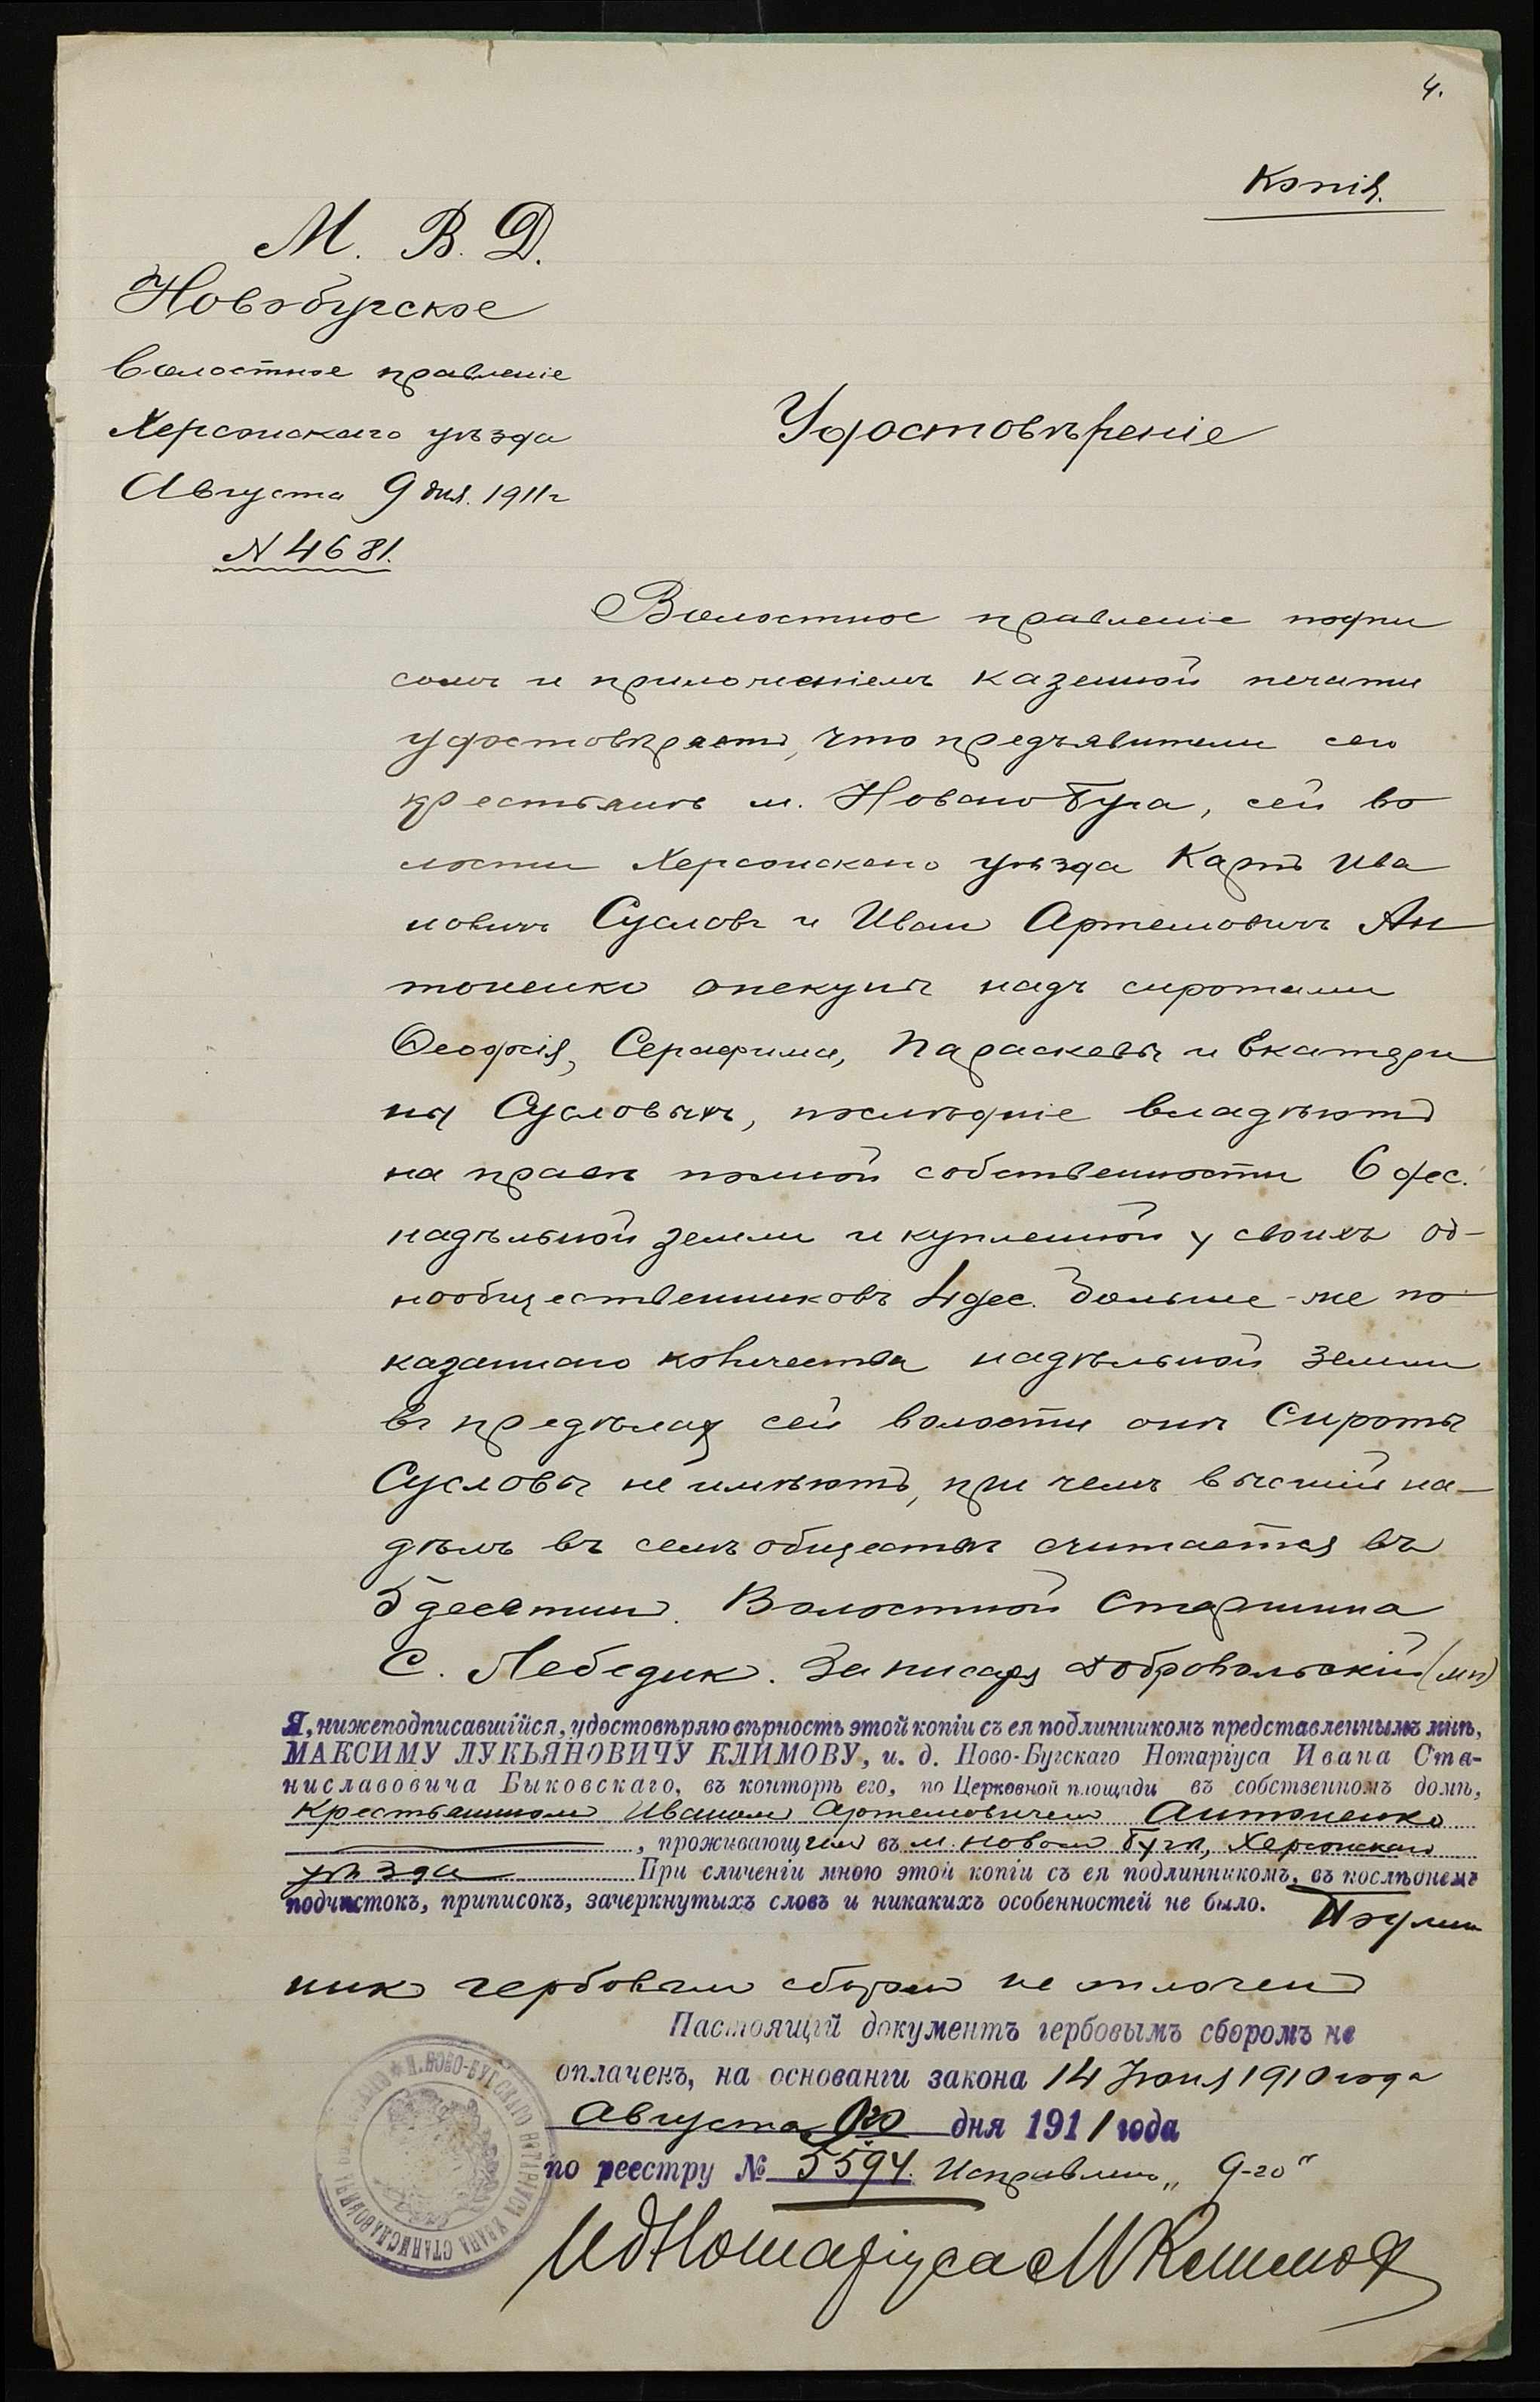 4.
Копія.
М. В. Д.
Новобугское
волостное правленіе
Херсонскаго уѣзда
Августа 9 дня. 1911 г
N 4681.
Удостовѣреніе
Волостное правленіе подпи
сомъ и приложеніемъ казенной печати
удостовѣряетъ, что предъявители сего
крестьянъ м. Новаго Буга, сей во
лости Херсонскаго уѣзда Карпъ Ива
новичъ Сусловъ и Иванъ Артемовичъ Ан
тоненко опекуны надъ сиротами
Ѳеодосія, Серафима, Параскевы и Екатери
ны Сусловыхъ, послѣдніе владѣютъ
на правѣ полной собственности 6 дес.
надѣльной земли и купленной у своихъ од-
нообщественниковъ 4 дес. Больше-же по
казаннаго количества надѣльной земли
въ предѣлах сей волости они Сироты
Сусловы не имѣютъ, при чемъ высшій на-
дѣлъ въ семъ обществѣ считается въ
5 десятинъ. Волостной Старшина
С. Лебедик. За писаря Добровольскій (мп)
Я, нижеподписавшійся, удостовѣряю вѣрность этой копіи съ ея подлинникомъ представленнымъ мнѣ,
МАКСИМУ ЛУКЬЯНОВИЧУ КЛИМОВУ, и. д. Ново-Бугскаго Нотаріуса Ивана Ста-
ниславовича Быковскаго, въ конторѣ его, по Церковной площади въ собственномъ домѣ,
Крестьянином Иваномъ Артемовичемъ Антоненко
, проживающимъ въ м. Новомъ Бугѣ, Херсонскаго
уѣзда При сличеніи мною этой копіи съ ея подлинникомъ, въ послѣднемъ
подчистокъ, приписокъ, зачеркнутыхъ словъ и никакихъ особенностей не было. Подлин
ник гербовым сбором не оплачен
Настоящій документъ гербовымъ сборомъ не
оплаченъ, на основаніи закона 14 Іюня 1910 года
Августа дня 1911 года
по реестру № 5594. Исправлено „9-го"
И д Нотаріуса М Климов